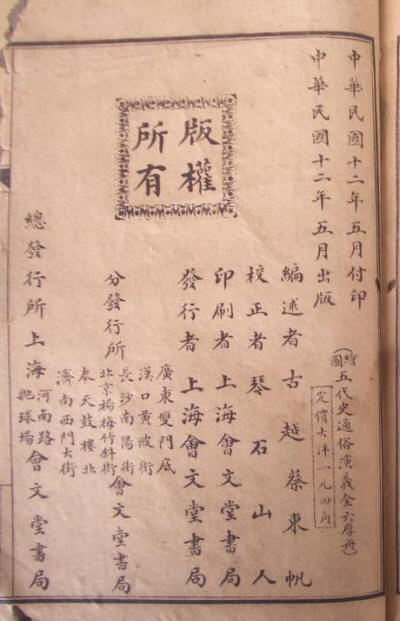 中華民國十二年五月付印
中華民國十二年五月出版
版權所有
(繪圖)五代史通俗演義全六厚册
定價大洋一元四角
編述者古越蔡東帆
校正者琴石山人
印刷者上海會文堂書局
發行者上海會文堂書局
分發行所
廣東雙門底
漢口黃陂街
長沙南陽街
北京楊梅竹斜街
奉天鼓樓北
濟南西門大街
會文堂書局
總發行所上海
河南路
抛球場
會文堂書局